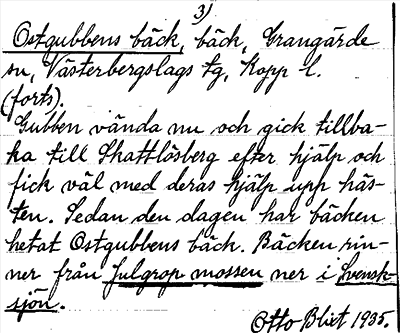 3)
Ostgubbens bäck, bäck, Grangärde
sn, Västerbergslags tg, Kopp l.
(forts).
Gubben vända nu och gick tillba-
ka till Skattlösberg efter hjälp och
fick väl med deras hjälp upp häs-
ten. Sedan den dagen har bäcken
hetat Ostgubbens bäck. Bäcken rin-
ner från Julgrop mossen ner i Svensk-
sjön.
Otto Blixt 1935.